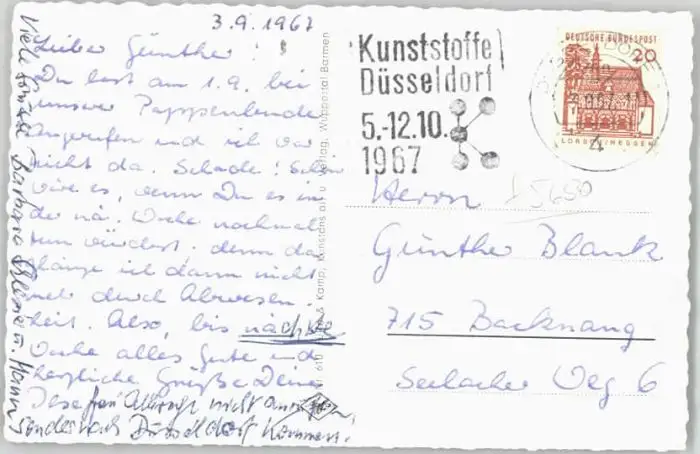 3.9.1967
Lieber Günther!
Du hast am 1.9. bei
unserer Pappenbude
angerufen und ich war
nicht da. Schade! Schön
wäre es, wenn Du es in
der nä. Woche nochmal
tun würdest. denn da
glänze ich dann nicht
mehr durch Abwesen-
heit. Also, bis nächste
Woche alles Gute und
herzliche Grüße Deine
nicht
sondern nach Düsseldorf kommen!
Viele Grüße Barbara u. Hanne
Kunststoffe
Düsseldorf
5.-12.10.
1967
DEUTSCHE BUNDESPOST
20
LORSCH/HESSEN
Herrn
Günther Blank
715 Backnang
Seelacher Weg 6